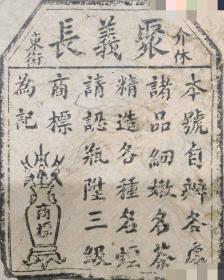 介休
聚義長
東街
本號自辦各處
諸品細嫩名茶
精造各種名烟
請認瓶陞三級
商標
為記
商標